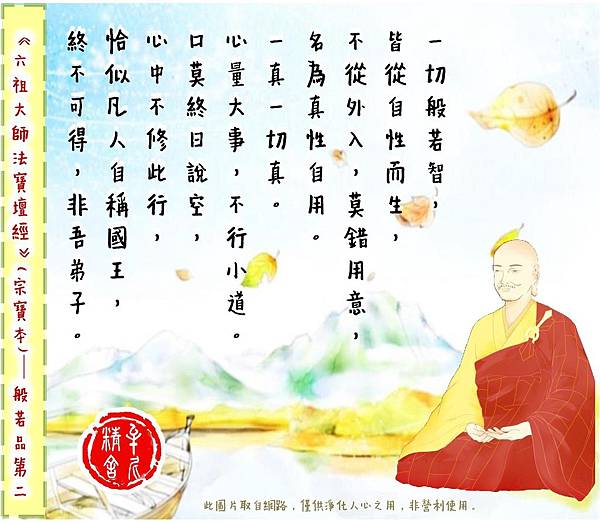 一切般若智，
皆從自性而生，
不從外入，莫錯用意，
名為真性自用。
一真一切真。
心量大事，不行小道。
口莫終日說空，
心中不修此行，
恰似凡人自稱國王，
終不可得，非吾弟子。
《六祖大師法寶壇經》(宗寶本)——般若品第二
精舍
此圖片取自網路，僅供淨化人心之用，非營利使用。